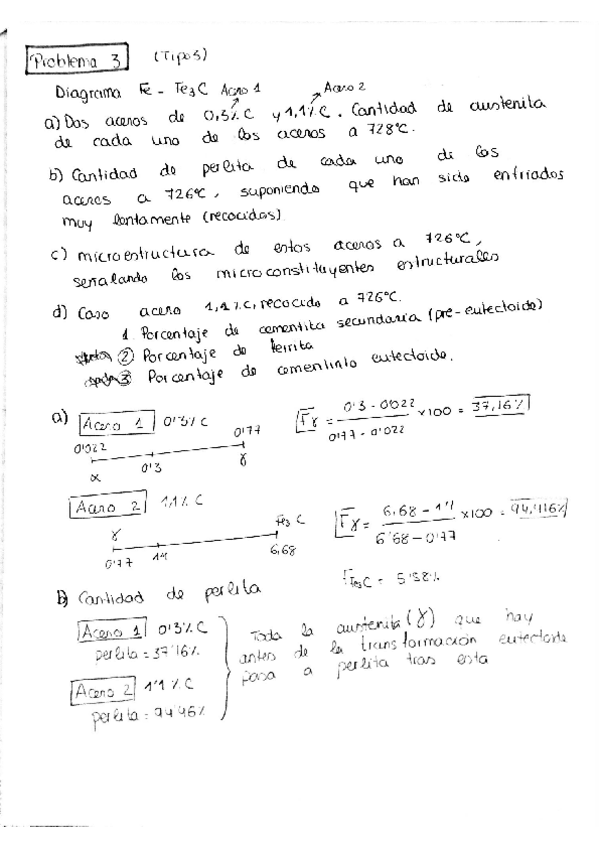 Problema 3 (Tipos)
Diagrama Fe - Fe3C Acero 1 Acero 2
a) Dos aceros de 0,3% C y 1,1% C. Cantidad de austenita
de cada uno de los aceros a 728ºC.
b) Cantidad de perlita de cada uno de los
aceros a 726ºC, suponiendo que han sido enfriados
muy lentamente (recocidos)
c) microestructura de estos aceros a 726ºC,
señalando los microconstituyentes estructurales
d) Caso acero 1,1% C, recocido a 726ºC.
1. Porcentaje de cementita secundaria (pre-eutectoide)
② Porcentaje de ferrita
③ Porcentaje de cementinta eutectoide.
a) Acero 1 0'3% C
0'022 0'77
α 0'3 γ
Fγ = 0'3 - 0'022 / 0'77 - 0'022 x100 = 37,16%
Acero 2 1,1% C
γ Fe3 C
0'77 1'1 6,68
Fγ = 6,68 - 1'1 / 6'68 - 0'77 x100 = 94,416%
FFe3C = 5'58%
b) Cantidad de perlita
Acero 1 0'3% C
perlita = 37'16%
Acero 2 1'1% C
perlita = 94'46%
Toda la austenita (γ) que hay
antes de la transformación eutectoide
pasa a perlita tras esta